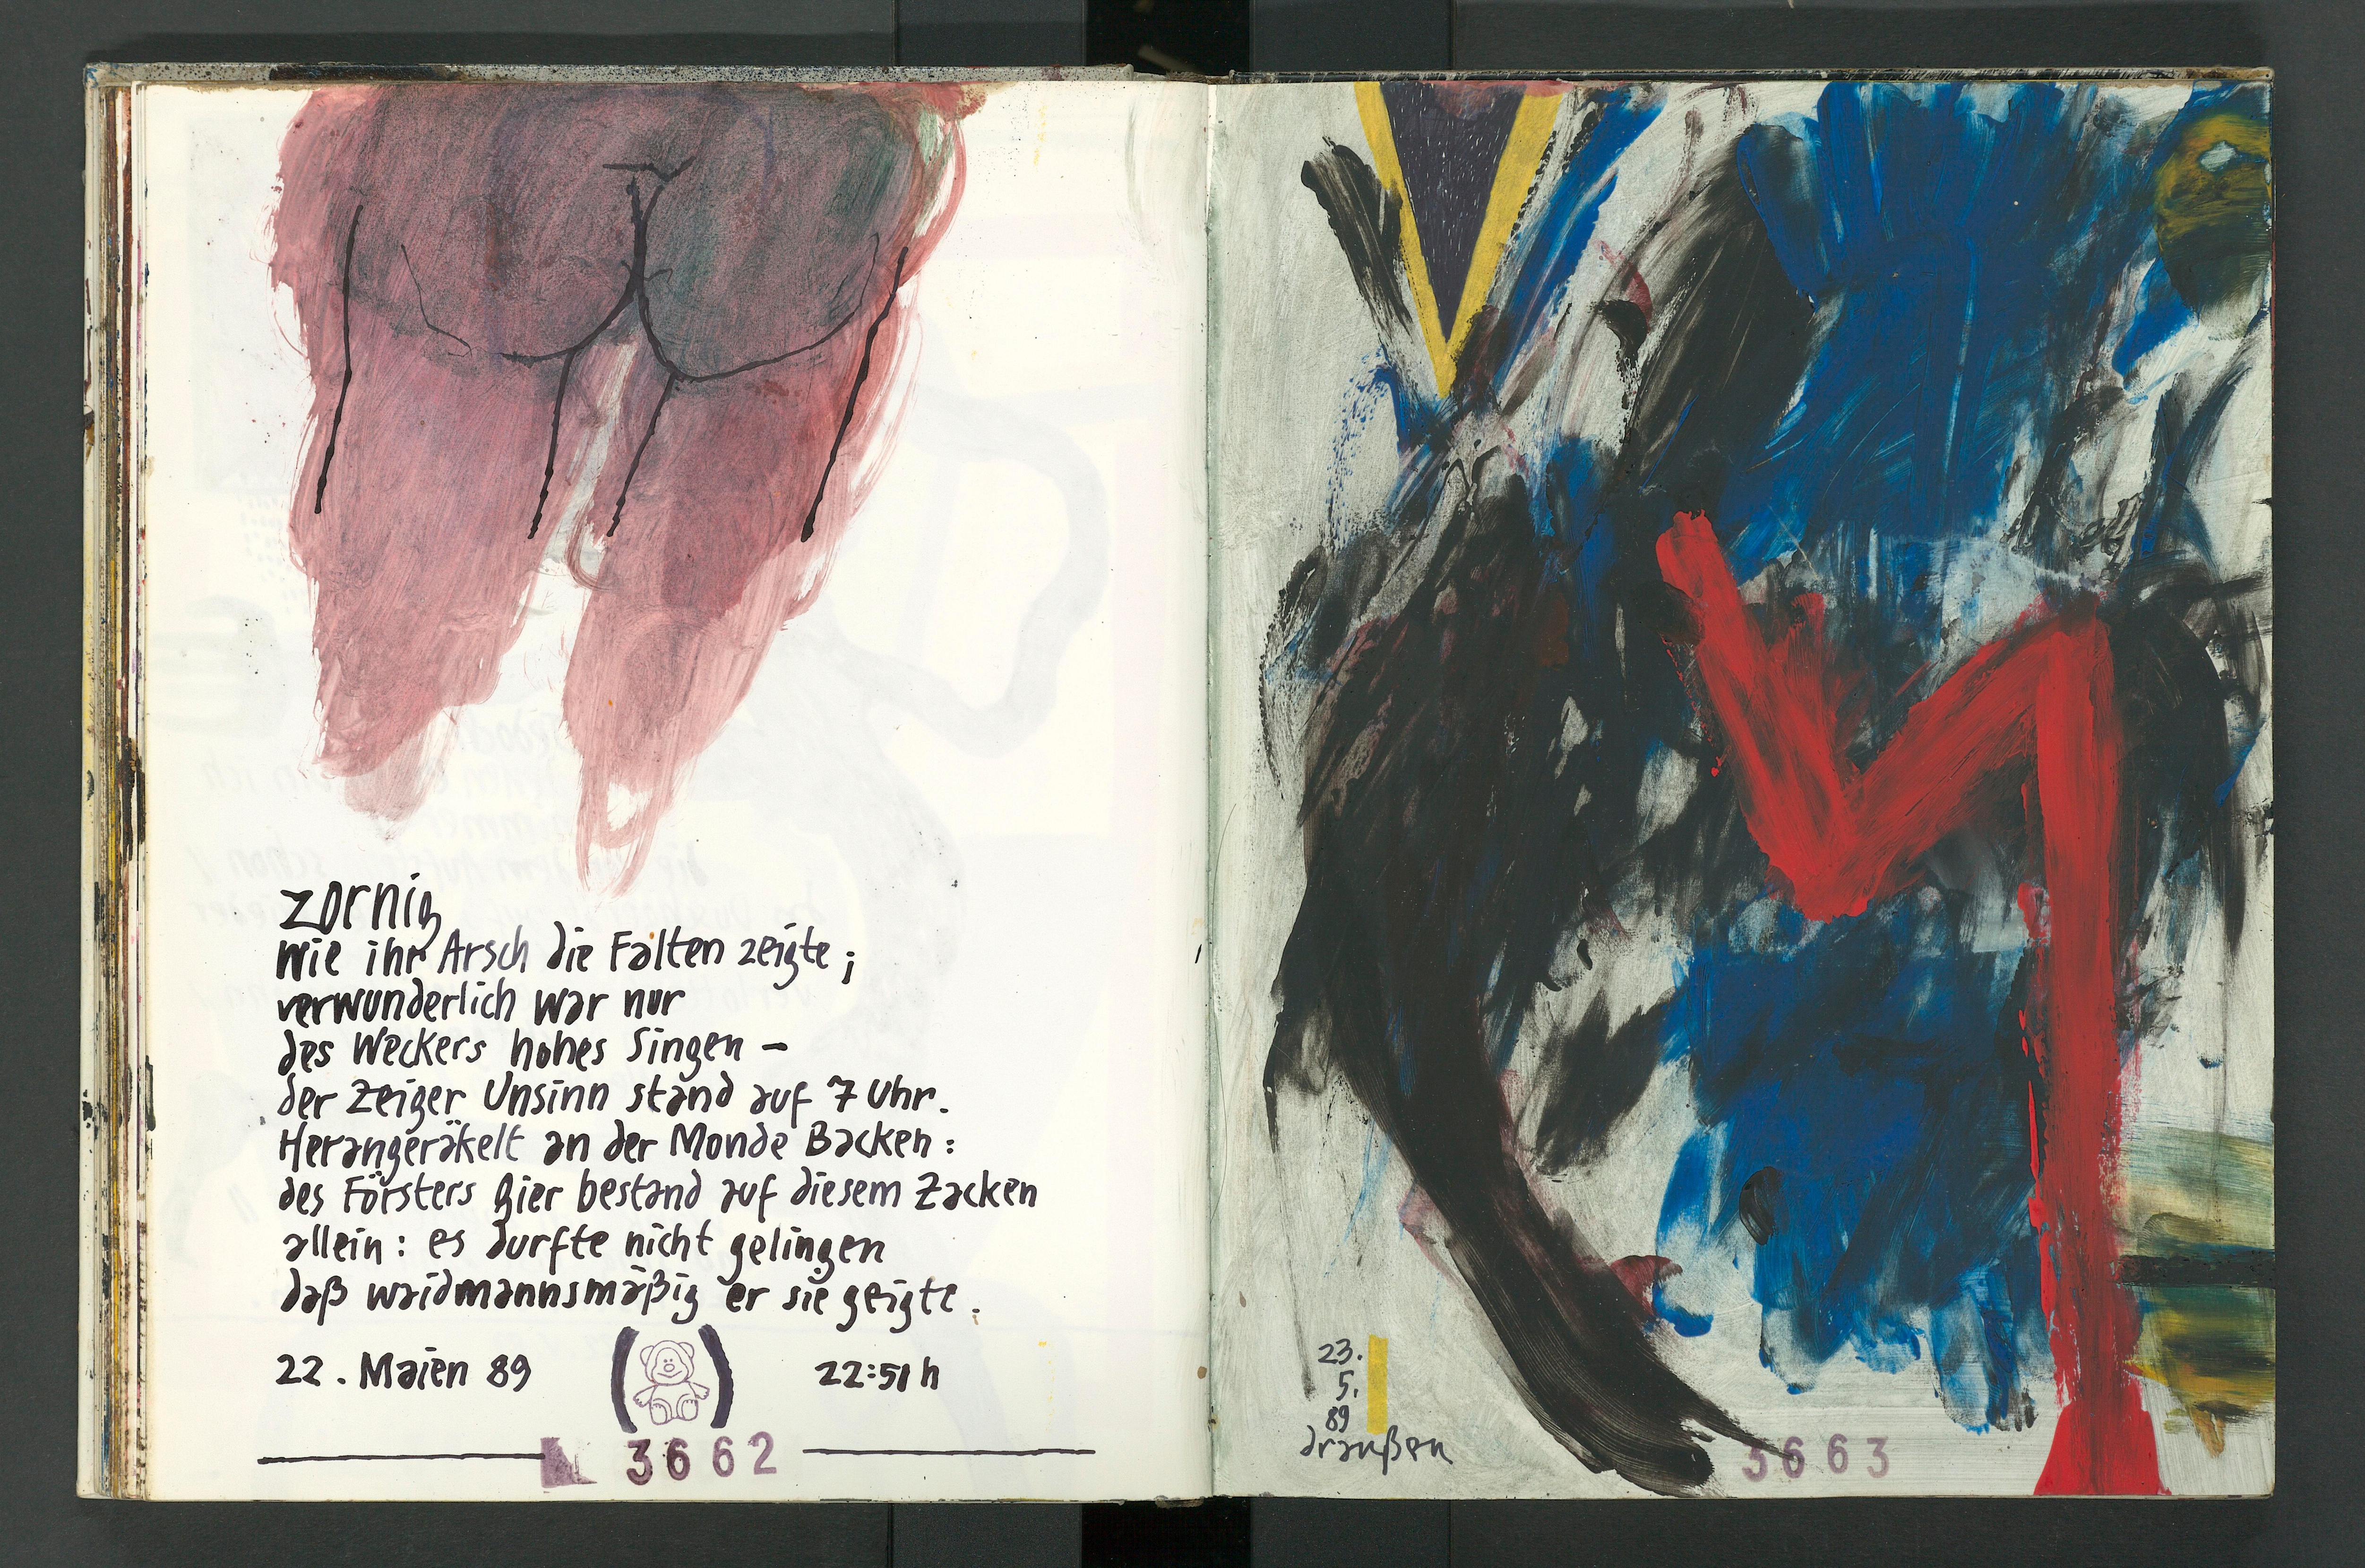 zornig
wie ihr Arsch die Falten zeigte;
verwunderlich war nur
des Weckers hohes Singen –
der Zeiger Unsinn stand auf 7 Uhr.
Herangeräkelt an der Monde Backen:
des Försters Gier bestand auf diesem Zacken
allein: es durfte nicht gelingen
daß waidmannsmäßig er sie geigte.
22. Maien 89 22:51 h
3662
23.
5.
89
draußen
3663